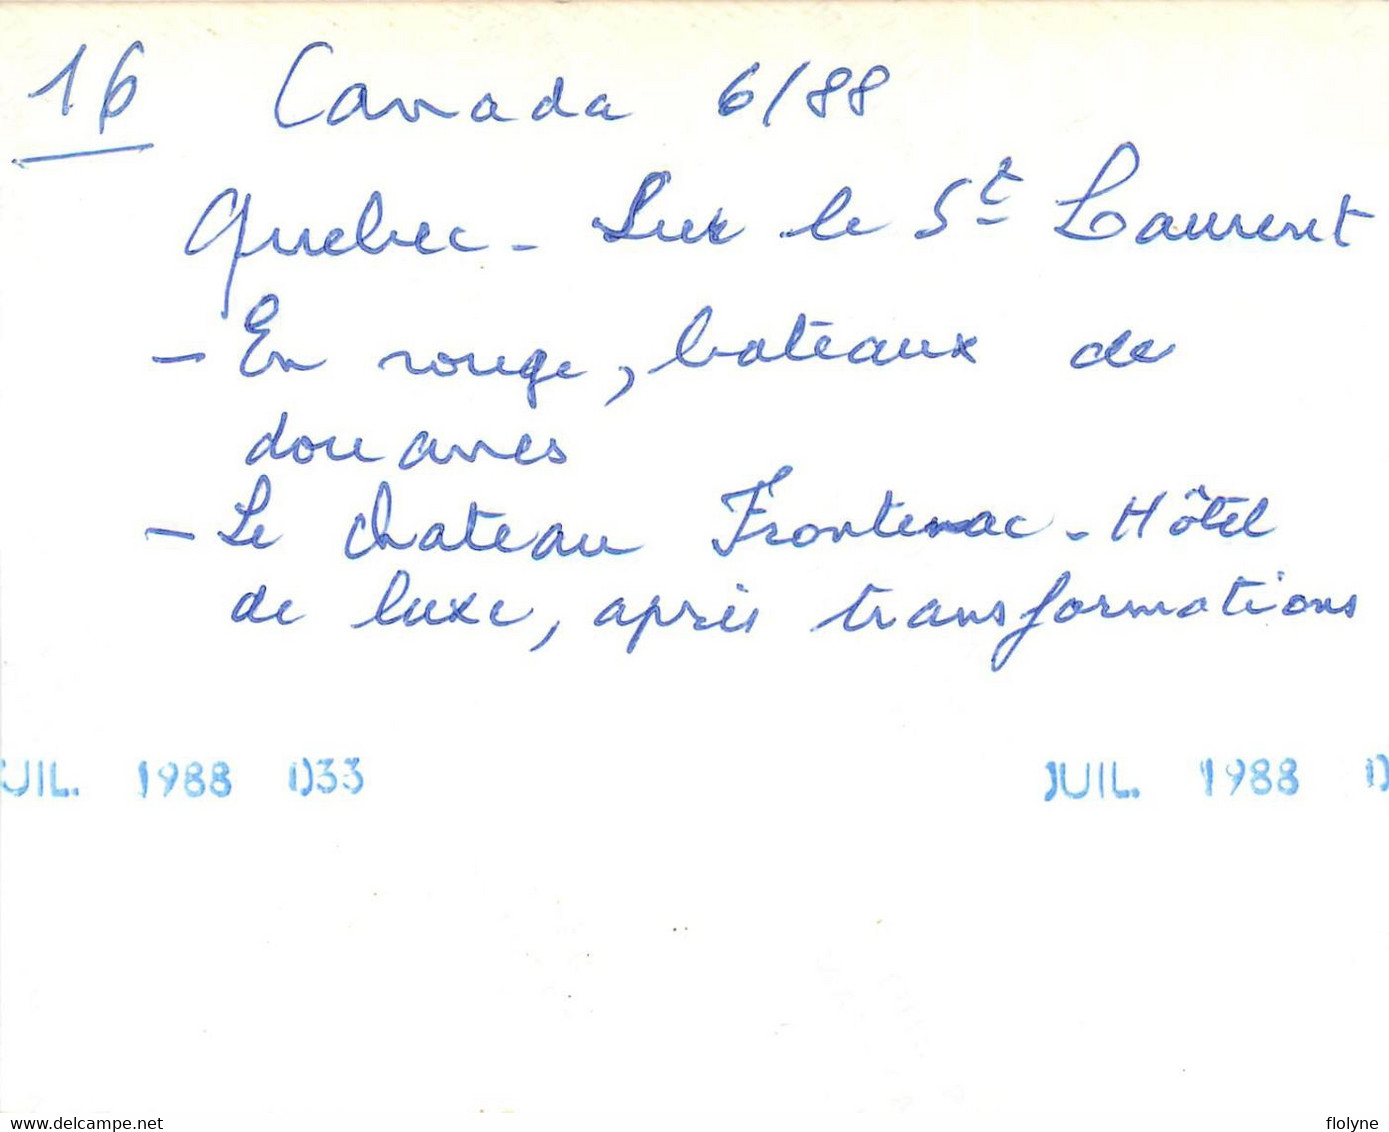 16 Canada 6/88
Quebec - Sur le St Laurent
- En rouge, bateaux de
douanes
- Le chateau Frontenac - Hôtel
de luxe, après transformations
JUIL. 1988 D33 JUIL. 1988 D
flolyne